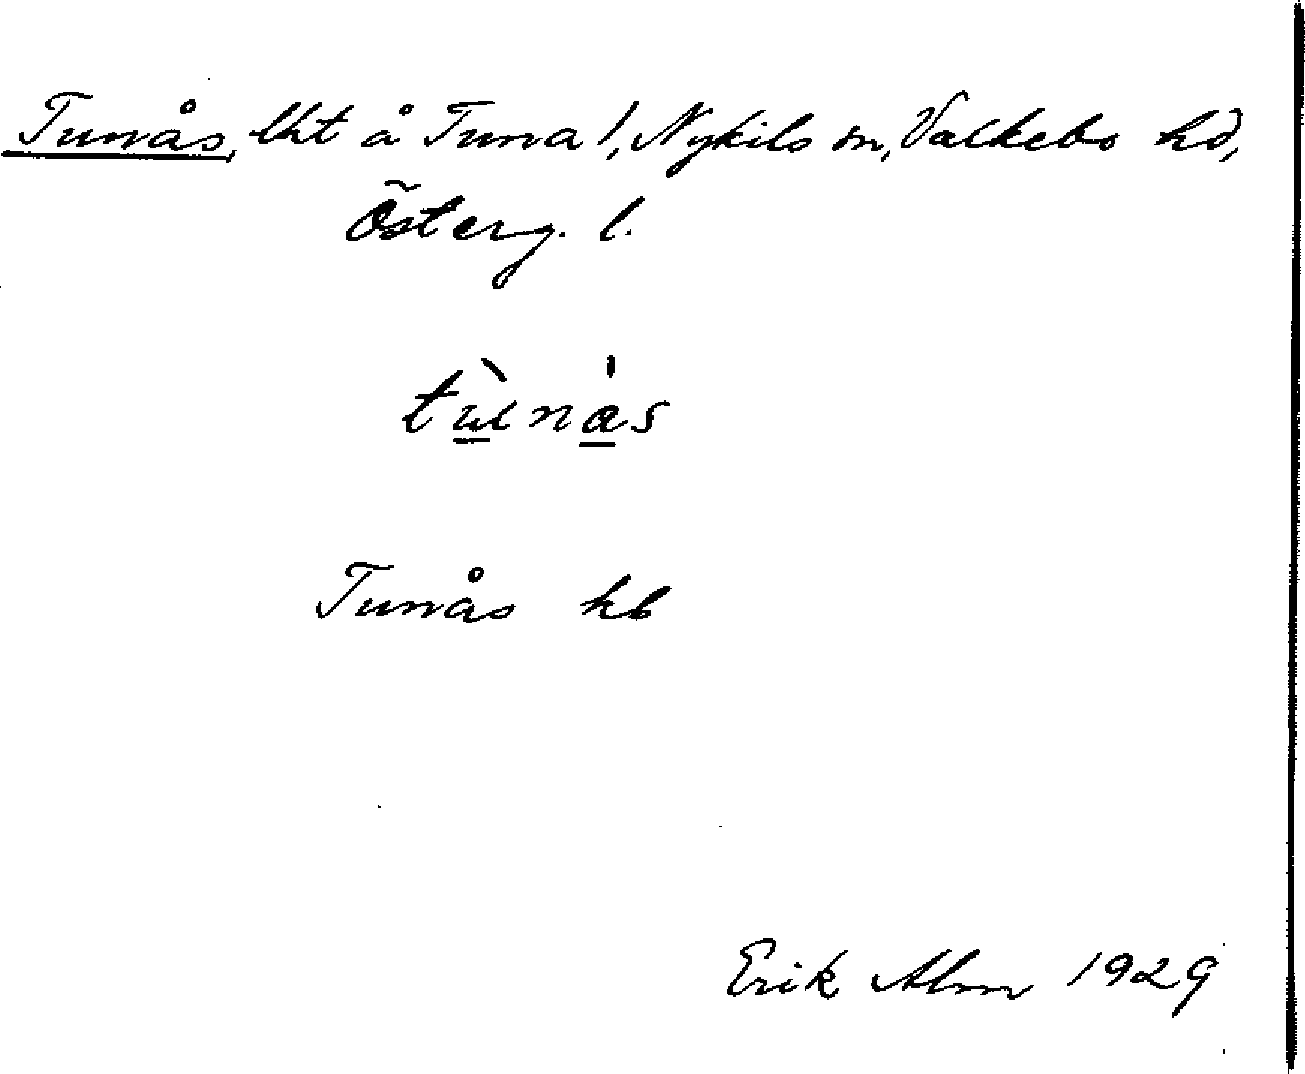 Tunås, lht å Tuna 1, Nykils sn, Valkebo hd,
Österg. l.
tùnás
Tunås hb
Erik Alm 1929